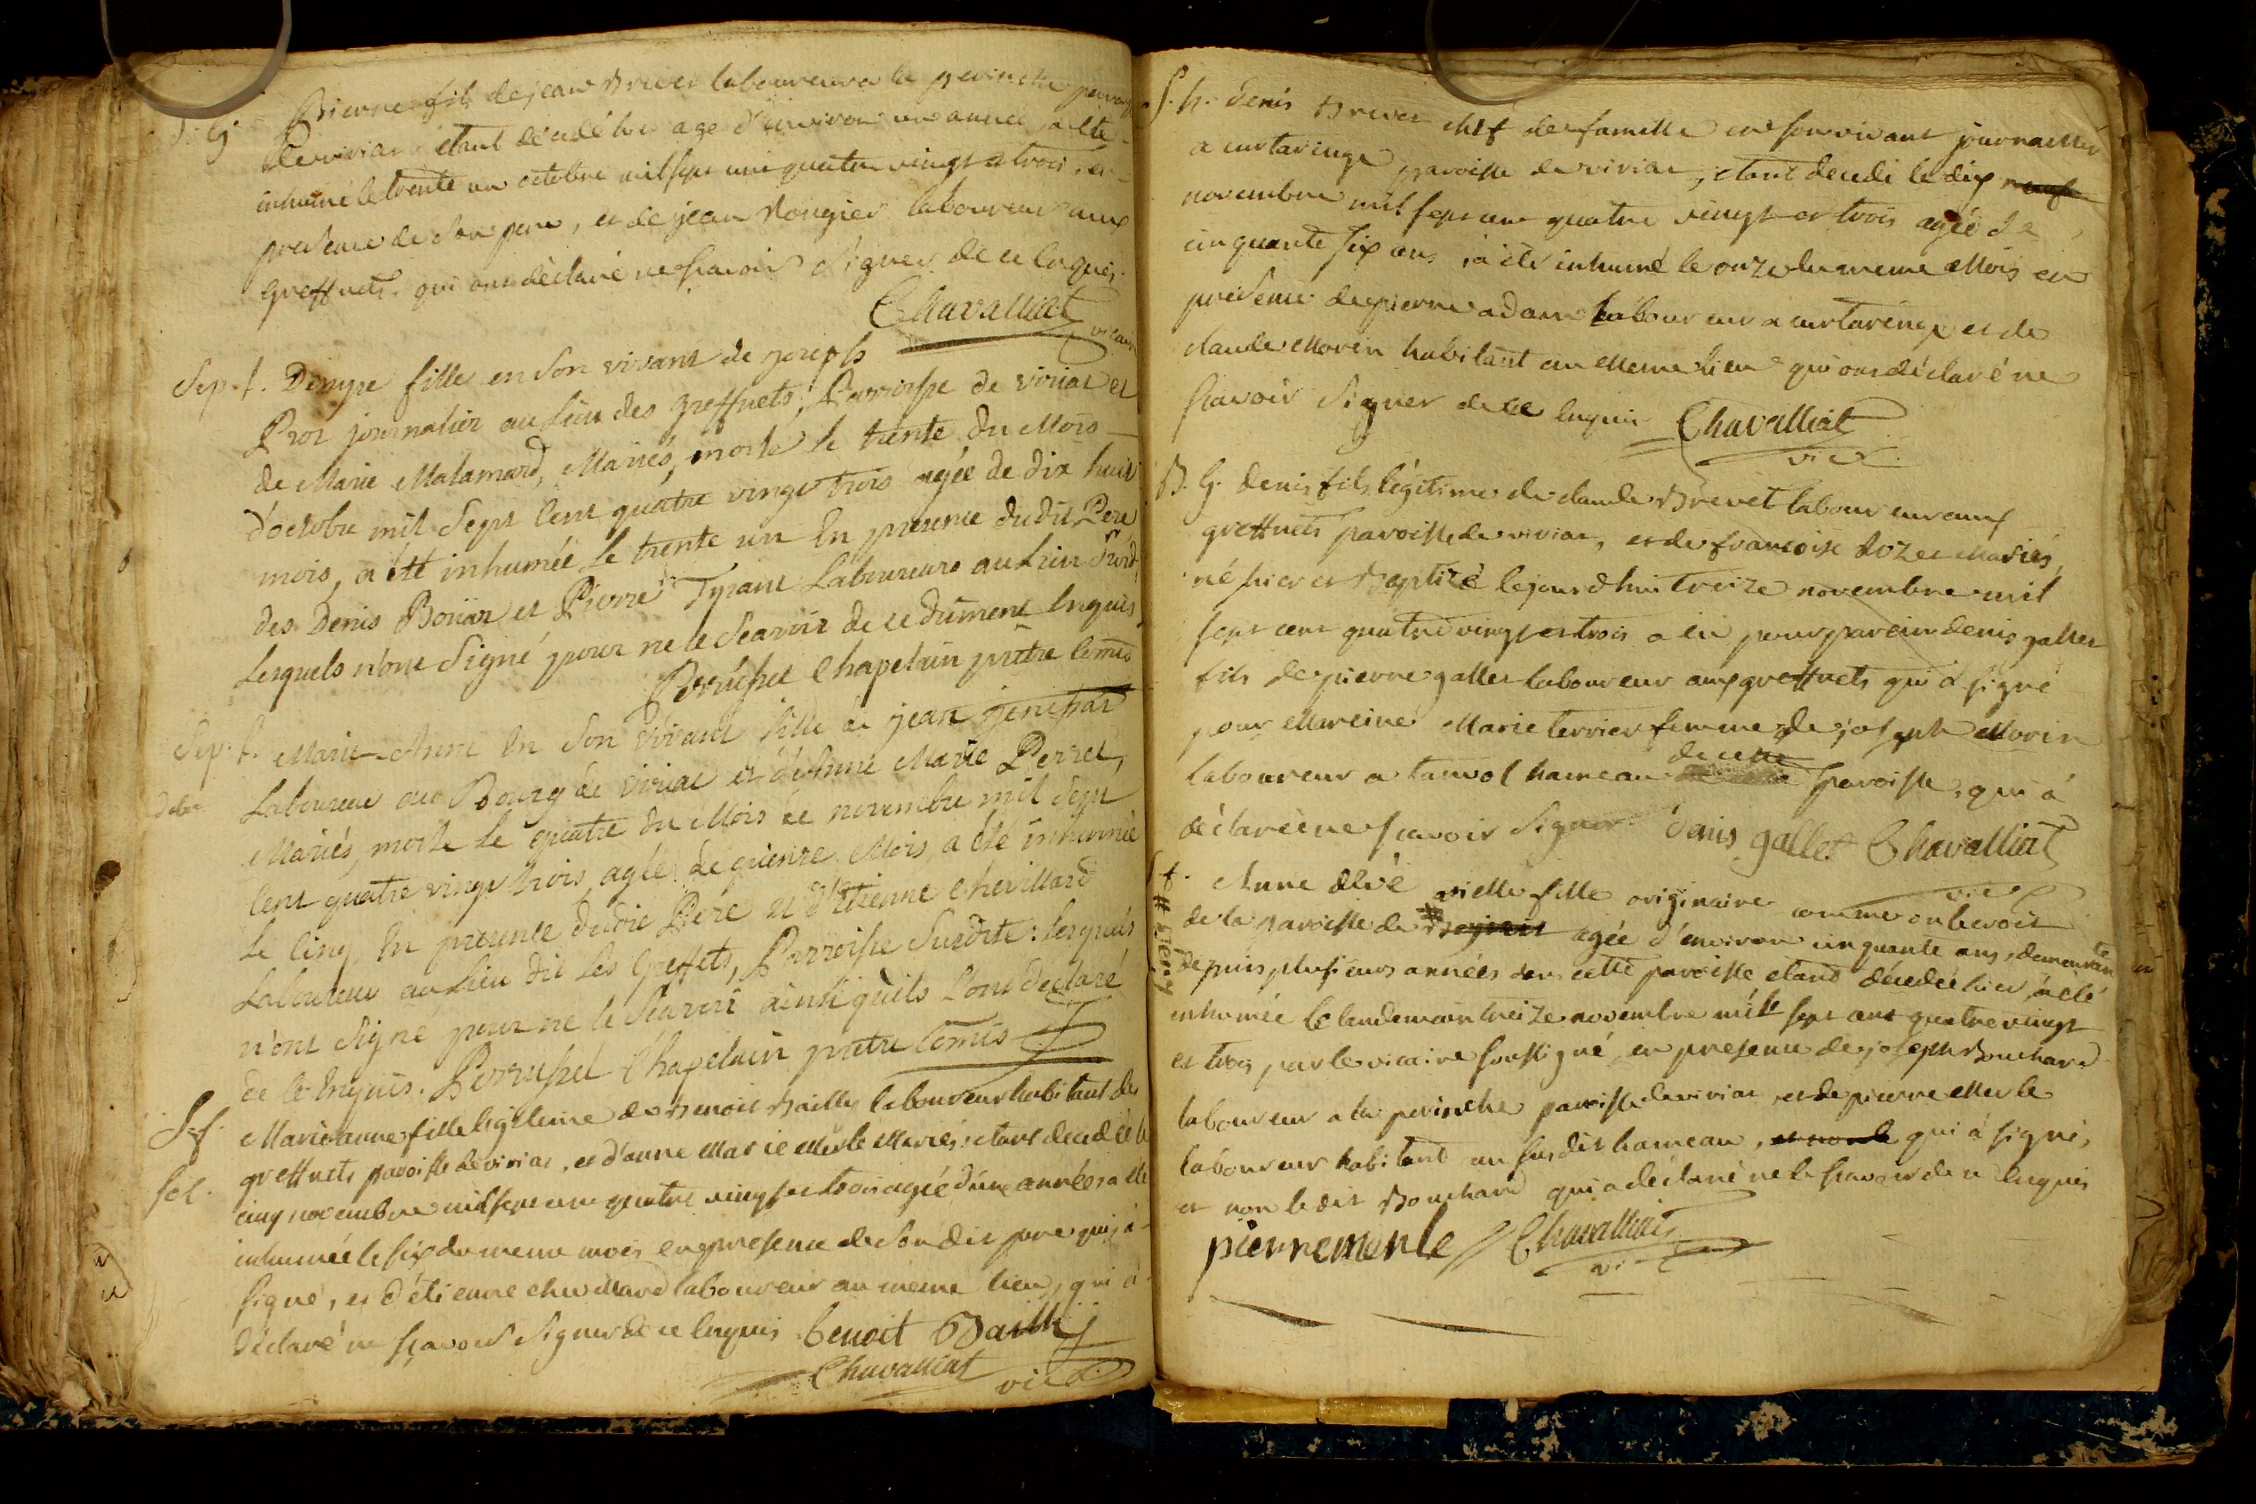 S. G. Pierre fils de jean Brevet laboureur a la perinche paroisse
de viriat étant décédé hier agé d'environ une année a été
inhumé le trente un octobre mil sept cent quatre vingt et trois, en
presence de son pere, et de jean Rougier laboureur aux
greffnets. qui ont déclaré ne scavoir signer de ce enquis.
Chavalliat vicaire
Sep. f. Denyse fille en son vivant de joseph
Prot journalier au Lieu des greffnets, Parroisse de viriat et
de Marie Malamard, Mariés, morte le trente du Mois
d'octobre mil sept Cent quatre vingt trois agée de dix huit
mois, a été inhumée le trente un En presence dudit Pere
des Denis Boüar et Pierre Tyrant Laboureurs au Lieu
Lesquels n'ont Signé pour ne le Scavoir de ce dument Enquis
Perruchet Chapelain prètre Comis
Sep. f. Marie-Anne En Son vivant fille de jean
Laboureur au Bourg de viriat et d'Anne Marie Perret,
Mariés, morte le quatre du Mois de novembre mil Sept
Cent quatre vingt trois, agée de quinze Mois, a été inhumée
Le Cinq, En presence dudit Pere et d'Etienne Chevillard
Laboureur au Lieu dit Les Greffets, Parroisse Susdite: lesquels
n'ont Signé pour ne le Scavoir ainsi qu'ils L'ont déclaré
de ce Enquis. Perruchet Chapelain pretre Comis
S. f. Marie anne fille legitime de Benoit Bailly laboureur habitant des
greffnets paroisse de viriat, et d'anne Marie Merle Mariés, étant decedée le
cinq novembre mil sept cent quatre vingt et trois agée d'une année, a été
inhumée le six du meme mois en presence de son dit pere qui à
signé, et d'étienne chevillard laboureur au meme lieu, qui a
déclaré ne scavoir signer de ce enquis benoit Bailly
Chavalliat vic.
S. h. denis Brevet chef de famille en son vivant journallier
a curtaringe, paroisse de viriat, étant decedé le dix neuf
novembre mil sept cent quatre vingt et trois agéé de
cinquante six ans, a été inhumé le onze du meme Mois en
présence de pierre adam laboureur a curtaringe et de
claude Morin habitant au Meme lieu qui ont déclaré ne
scavoir signer de ce enquis Chavalliat
vic.
B. G. denis fils légitime de claude Brevet laboureur aux
greffnets paroisse de viriat, et de francoise Mariés,
né hier et Baptizé lejourd'hui treize novembre mil
sept cent quatre vingt et trois a eu pour parein denis gallet
fils de pierre gallet laboureur aux greffnets qui a signé
pour Mareine Marie terrier femme de joseph Morin
laboureur a tanvol hameau de cette paroisse, qui à
déclaréé ne scavoir Signer. denis gallet Chavalliat
vic.
S. f. Anne vielle fille originaire comme on le croit
de la paroisse de # agée d'environ cinquante ans, demeurante
depuis plusieurs années dans cette paroisse étant décedée hier, a été
inhumée le landemain treize novembre mille sept cent quatre vingt
et trois par le vicaire soussigné, en presence de joseph Bouchard
laboureur a la perinche paroisse de viriat et de pierre Merle
laboureur habitant au susdit hameau, qui à signé,
et non le dit Bouchard qui a déclaré ne le scavoir de ce enquis
pierre merle Chavalliat
vic.